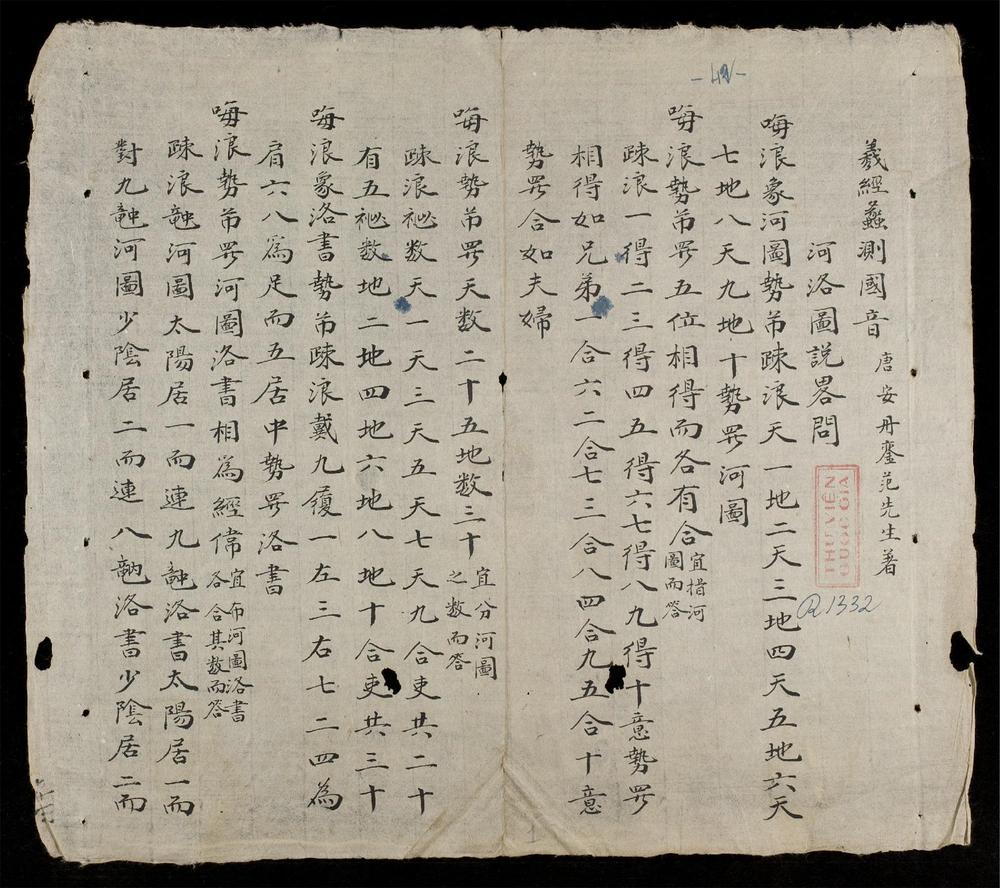 羲經蠡測國音 唐安丹鑾范先生著
河洛圖説畧問
𠳨浪象河圖勢芇踈浪天一地二天三地四天五地六天
七地八天九地十勢罖河圖
𠳨浪勢芇罖五位相得而各有合宜指河圖而答
踈浪一得二三得四五得六七得八九得十意勢罖
相得如兄弟一合六二合七三合八四合九五合十意
勢罖合如夫婦
𠳨浪勢芇罖天数二十五地数三十宜分河圖之数而答
踈浪祕数天一天三天五天七天九合吏共二十
有五祕数地二地四地六地八地十合吏共三十
𠳨浪象洛書勢芇踈浪戴九履一左三右七二四為
肩六八爲足而五居中勢罖洛書
𠳨浪勢芇罖河圖洛書相為經偉宜布河圖洛書各合其数而答
踈浪𧵑河圖太陽居一而連九𧵑洛書太陽居一而
對九𧵑河圖少陰居二而連八𧵑洛書少陰居二而
-42-
THƯ VIỆN
QUỐC GIA
R1332